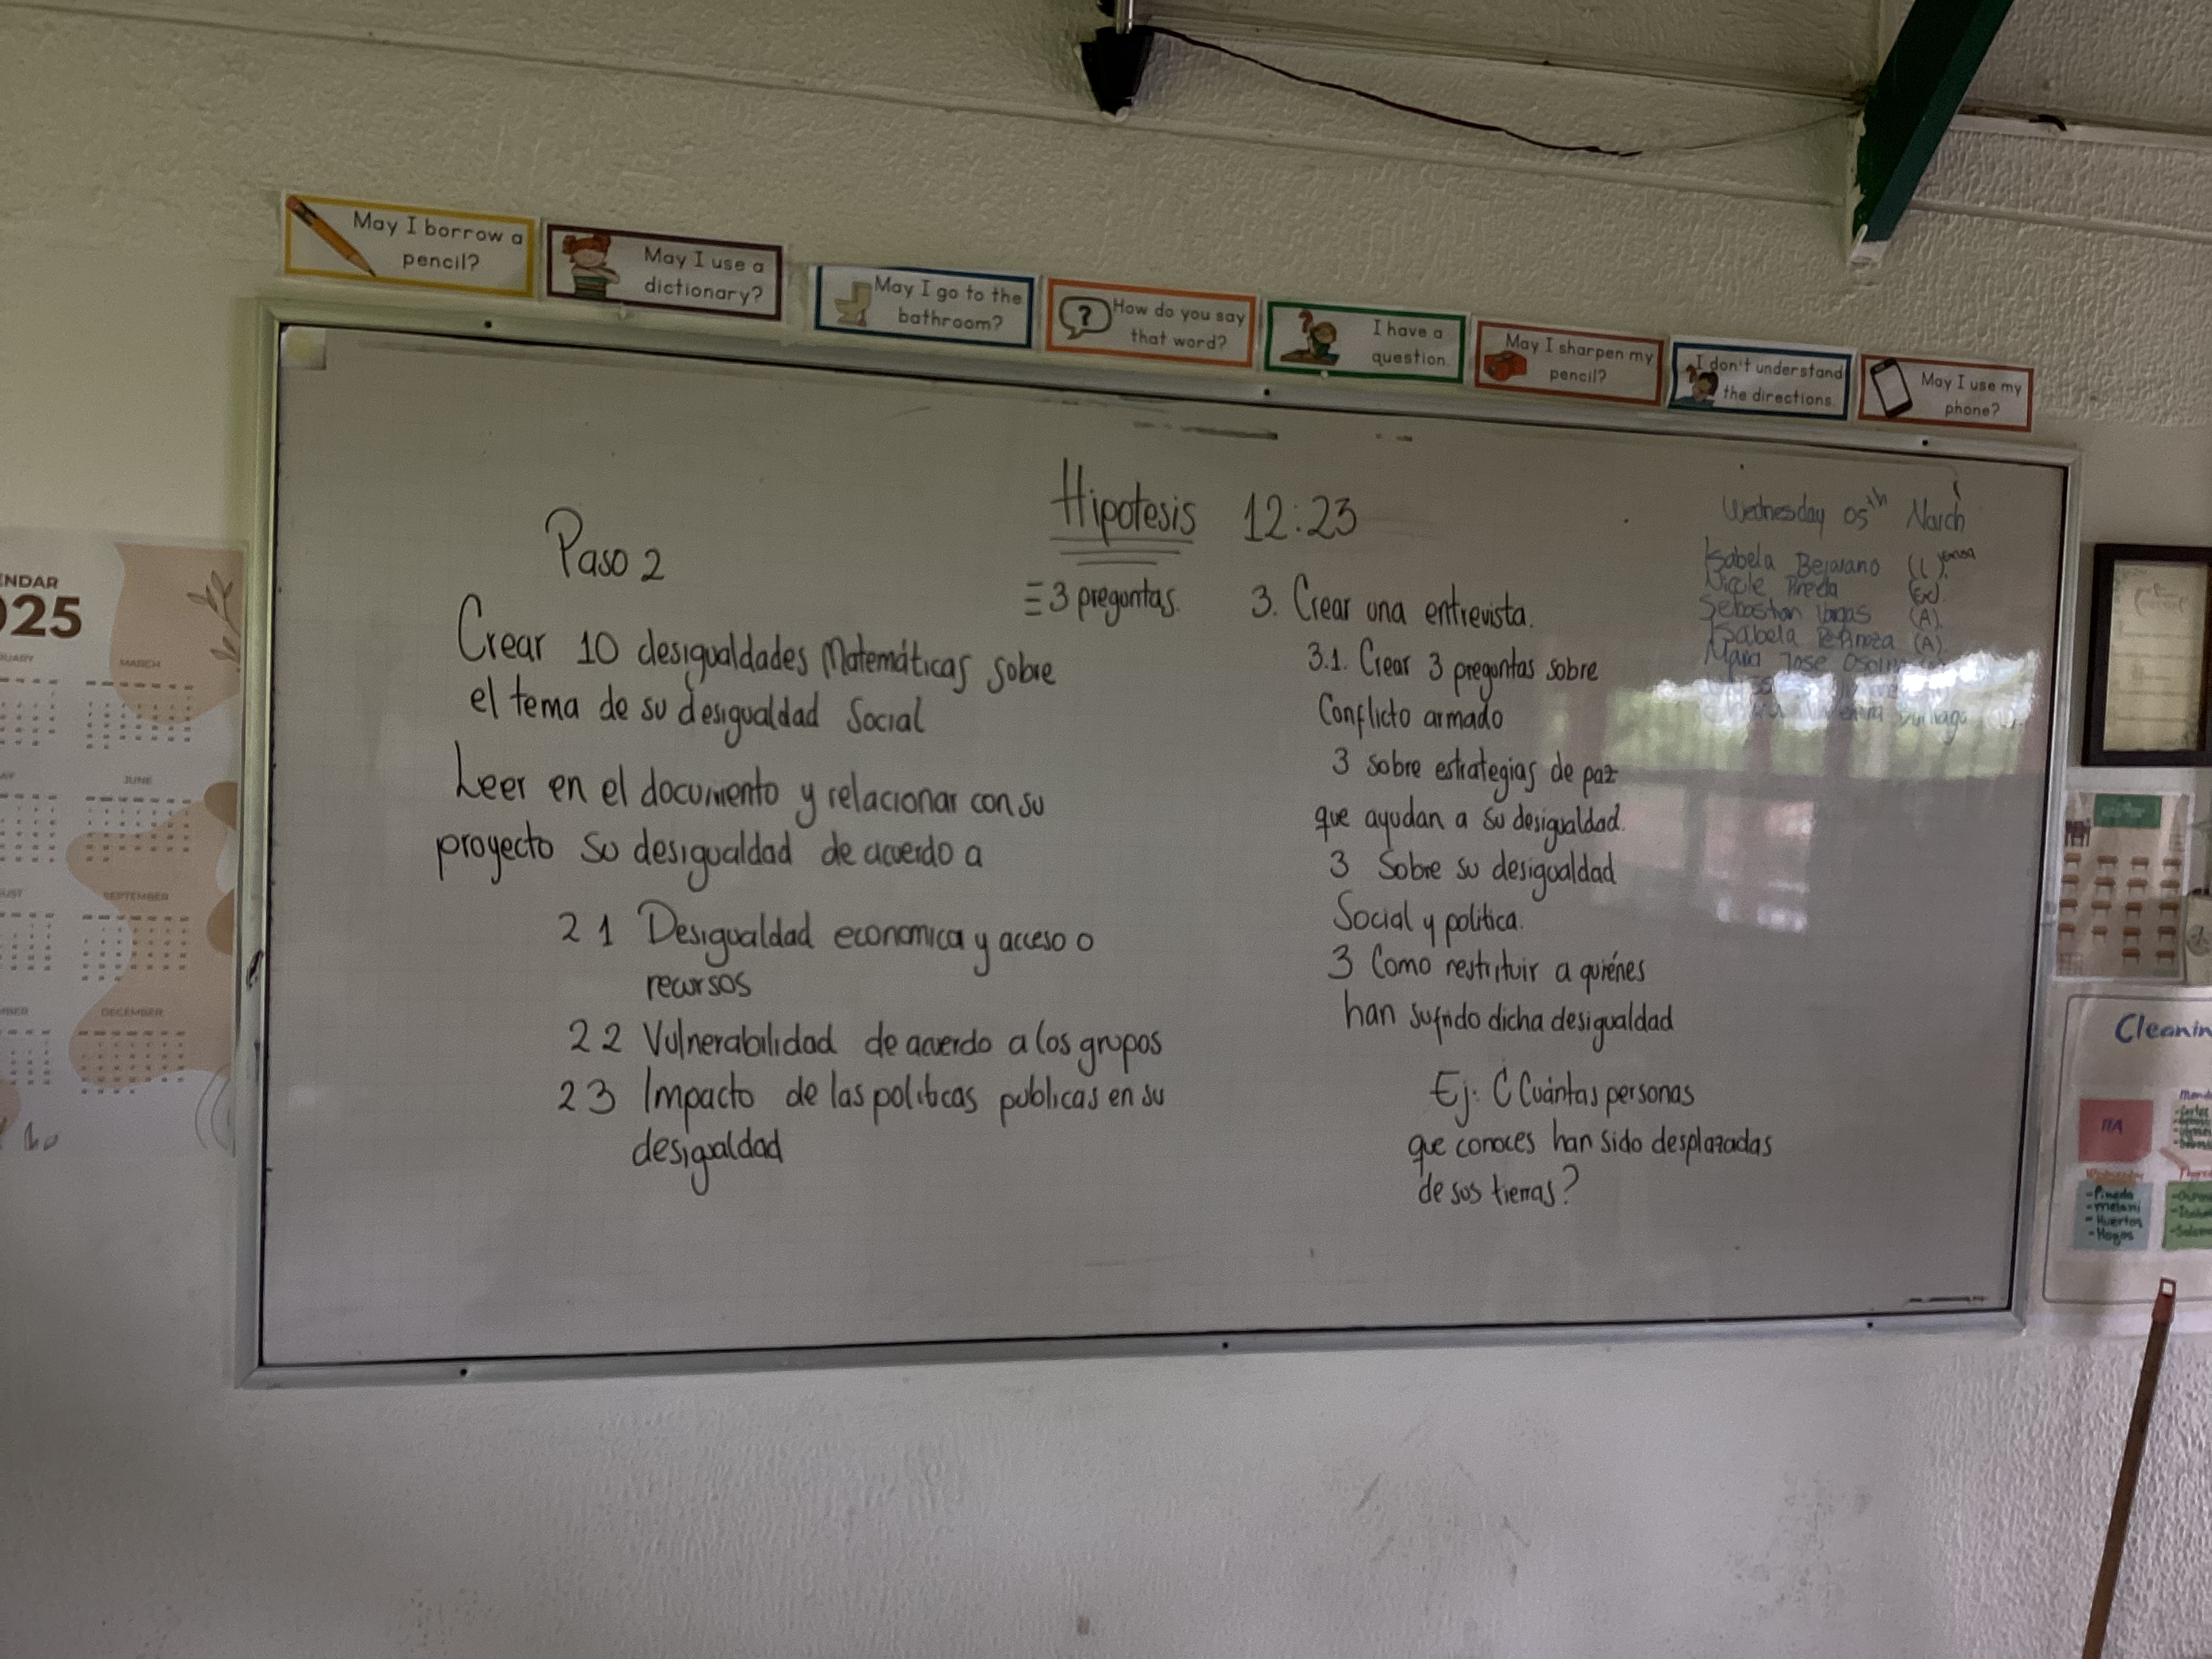 May I borrow a
pencil?
May I use a
dictionary?
May I go to the
bathroom?
?
How do you say
that word?
I have a
question.
May I sharpen my
pencil?
I don't understand
the directions.
May I use my
phone?
Hipotesis 12:23
Paso 2
Crear 10 desigualdades Matemáticas sobre
el tema de su desigualdad Social
Leer en el documento y relacionar con su
proyecto su desigualdad de acuerdo a
2 1 Desigualdad economica y acceso o
recursos
2 2 Vulnerabilidad de acuerdo a los grupos
2 3 Impacto de las politicas publicas en su
desigualdad
3 preguntas.
3. Crear una entrevista.
3.1. Crear 3 preguntas sobre
Conflicto armado
3 sobre estrategias de paz
que ayudan a su desigualdad.
3 Sobre su desigualdad
Social y politica.
3 Como restituir a quiénes
han sufrido dicha desigualdad
Ej: ¿Cuántas personas
que conoces han sido desplazadas
de sus tierras?
Wednesday 05th March
Isabela Bejarano (L)
Nicole Pineda (Ex).
Sebastian Vargas (A).
Isabela (A)
Maria Jose
ENDAR
025
MARCH
JUNE
SEPTEMBER
DECEMBER
Cleanin
-Pineda
-Melani
-Huertos
-Hoyos